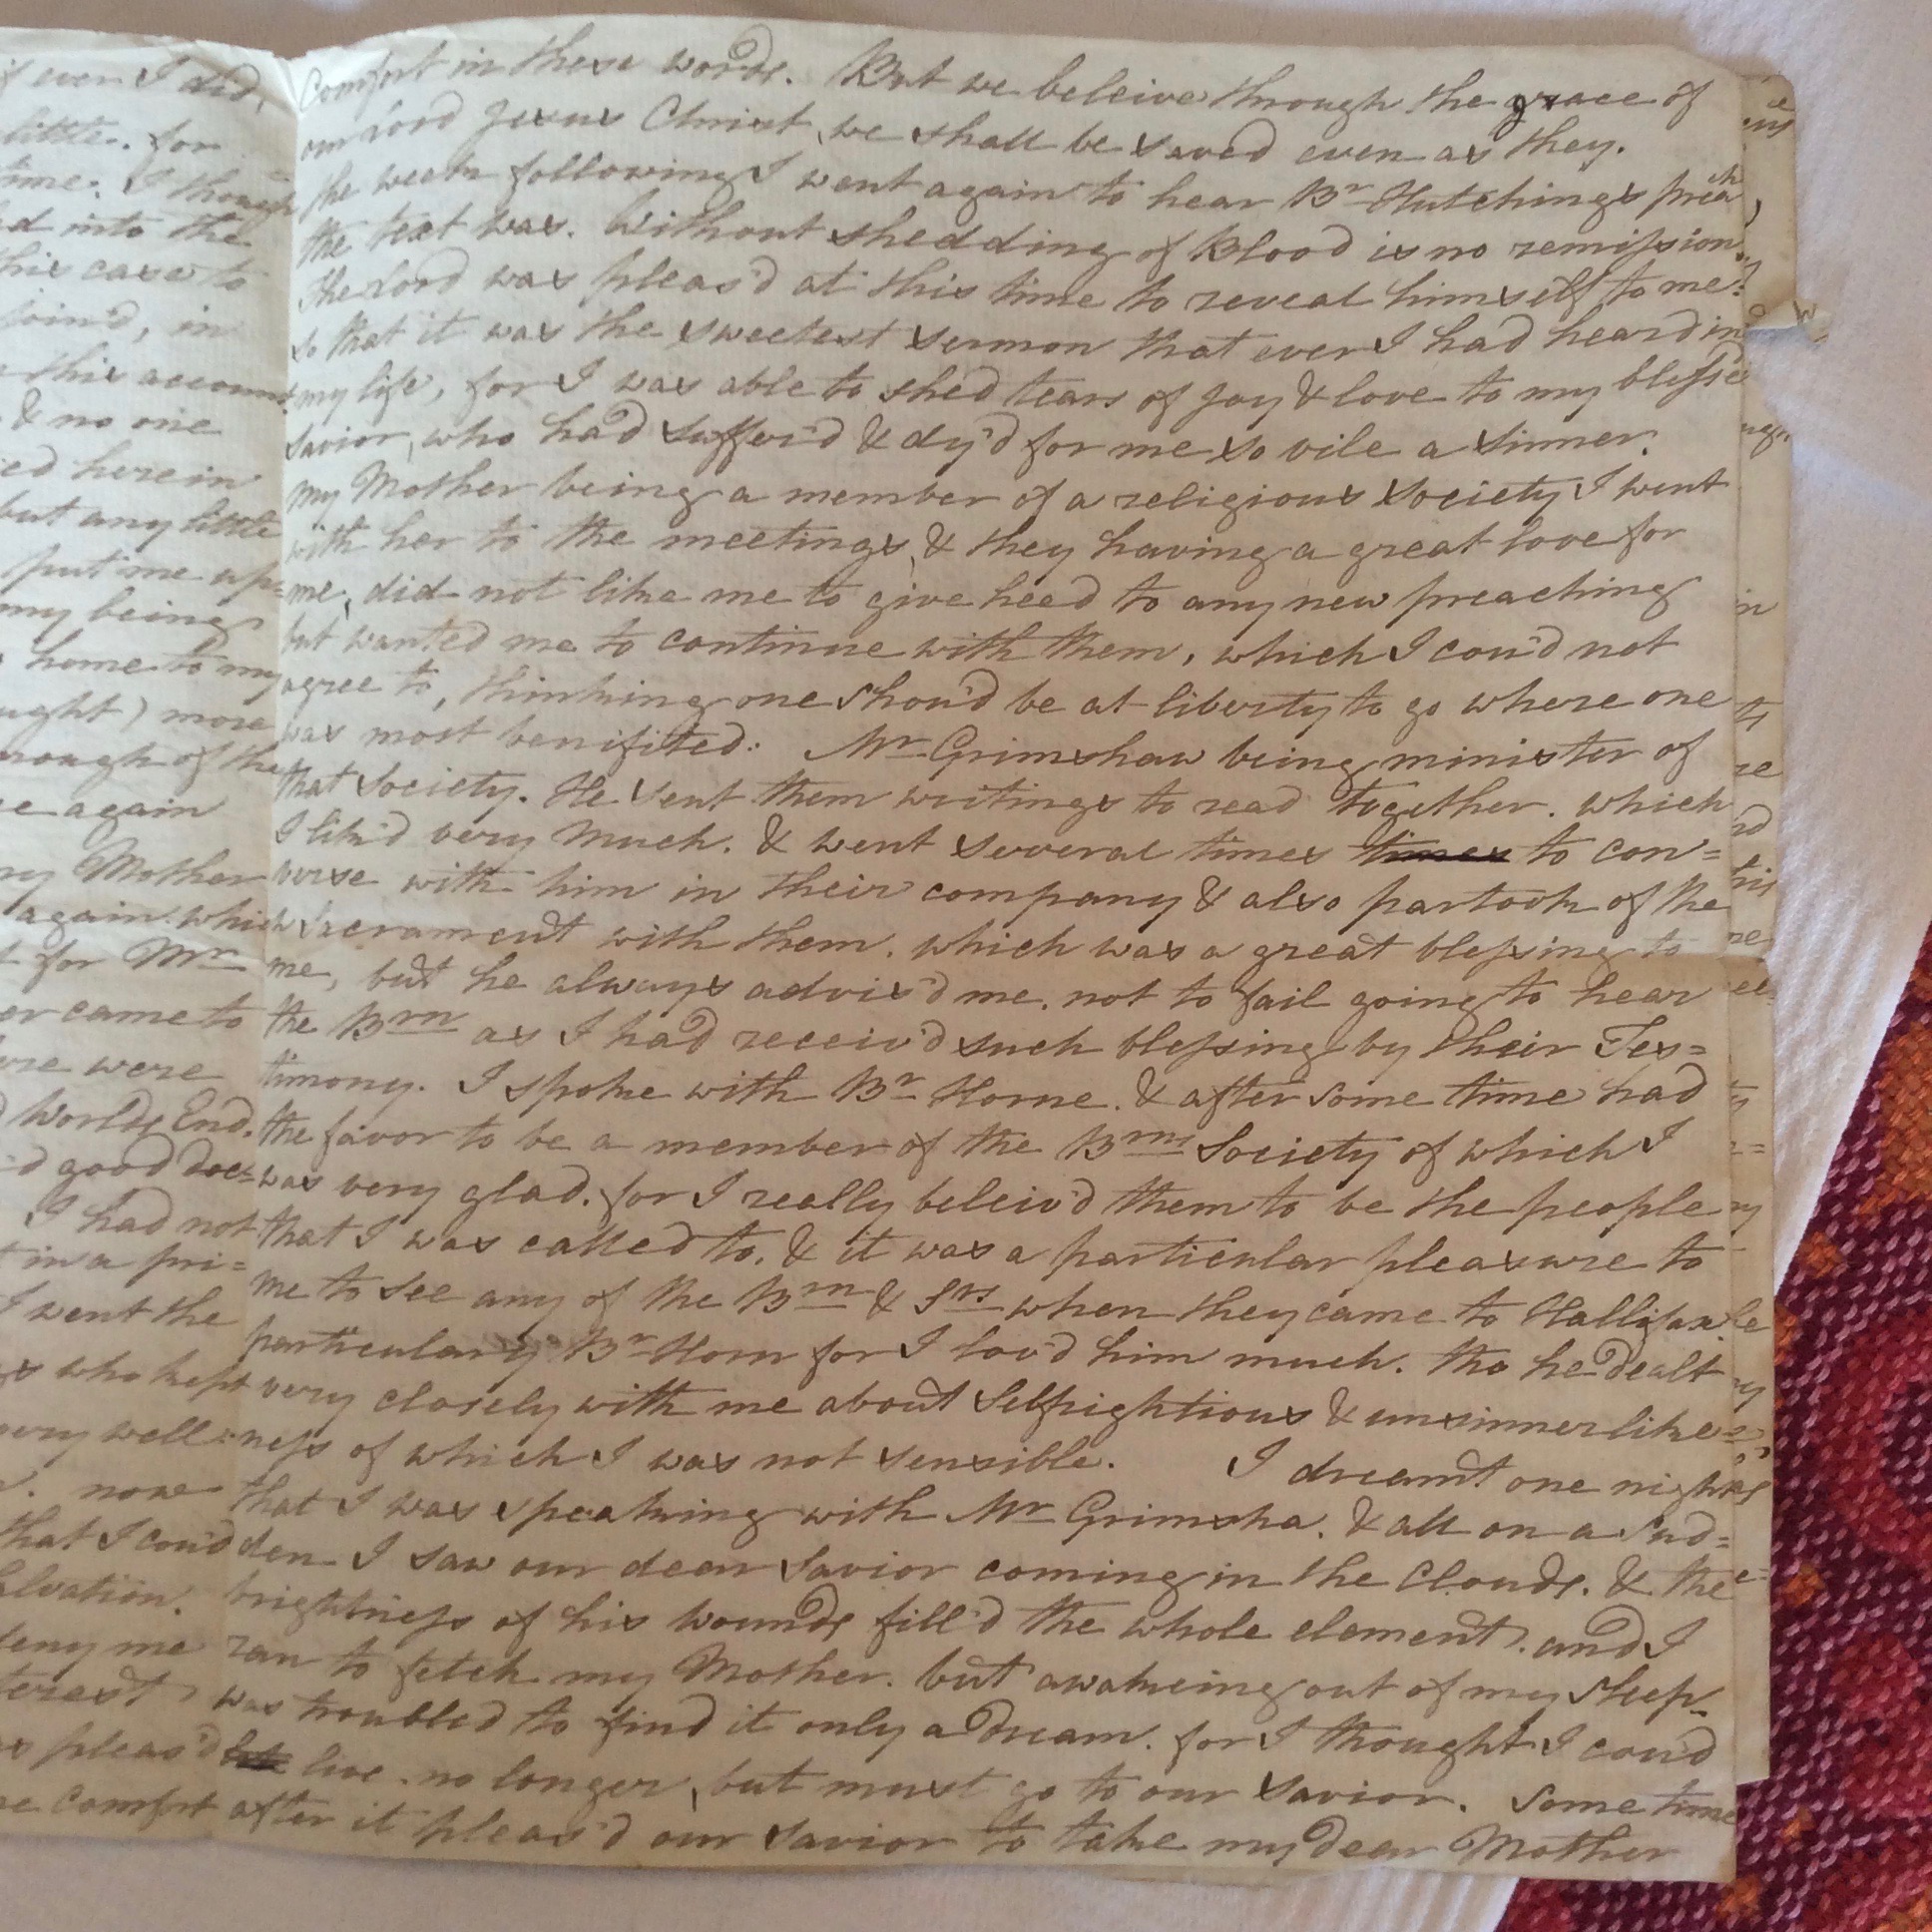 if ever I did,
little. for
time. I though
ed into the
his case to
join'd, in
this account
& no one
ed herein
but any little
put me up=
my being
home to my
ought) more
through of the
e again
my Mother
again. which
t for Mr
er came to
were
Worlds End.
d good doc=
I had not
t in a pri=
I went the
gs who kept
very well:
now
that I cou'd
alvation.
deny me
terest
pleas'd
comfort
Comfort in these words. But we beleive through the grace of
our Lord Jesus Christ, we shall be saved even as they.
the week following I went again to hear Br Hutchings preach
the text was. Without shedding of Blood is no remission.
the Lord was pleas'd at this time to reveal himself to me:
so that it was the sweetest sermon that ever I had heard in
my life, for I was able to shed tears of Joy & love to my blesse
Savior, who had suffer'd & dy'd for me so vile a sinner.
My Mother being a member of a religious Society I went
with her to the meetings, & they having a great love for
me, did not like me to give heed to any new preaching
but wanted me to continue with them, which I cou'd not
agree to, thinking one shou'd be at liberty to go where one
was most benifited: Mr Grimshaw being minister of
that Society. He sent them writings to read together. which
I lik'd very much. & went several times times to con=
verse with him in their company & also partook of the
Sacrament with them. which was a great blessing to
me, but he always advis'd me. not to fail going to hear
the Brn as I had receiv'd such blessing by their Tes=
timony. I spoke with Br Horne. & after some time had
the favor to be a member of the Brns Society of which I
was very glad. for I really beleiv'd them to be the people
that I was called to. & it was a particular pleasure to
me to see any of the Brn & Srs when they came to Hallifax.
particulary Br Horn for I lov'd him much. tho he dealt
very closely with me about Selfrightious & unsinnerlike=
ness of which I was not sensible. I dreamt one night
that I was speaking with Mr Grimsha. & all on a Sud=
den I saw our dear Savior coming in the Clouds. & the
brightness of his wounds fill'd the whole element. and I
ran to fetch my Mother. but awakeing out of my Sleep.
was troubled to find it only a Dream. for I thought I cou'd
live no longer, but must go to our Savior. Some time
after it pleas'd our Savior to take my dear Mother